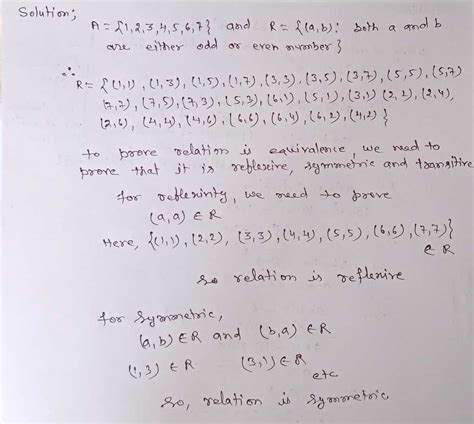 Solution;
A = {1,2,3,4,5,6,7} and R = {(a,b): both a and b
are either odd or even number}
∴
R = {(1,1), (1,3), (1,5), (1,7), (3,3), (3,5), (3,7), (5,5), (5,7)
(7,7), (7,5), (7,3), (5,3), (6,1), (5,1), (3,1) (2,2), (2,4),
(2,6), (4,4), (4,6), (6,6), (6,4), (6,2), (4,2)}
to prove relation is equivalence, we need to
prove that it is reflexive, symmetric and transitive
for reflexivity, we need to prove
(a,a) ∈ R
Here, {(1,1), (2,2), (3,3), (4,4), (5,5), (6,6), (7,7)}
∈ R
So relation is reflexive
for symmetric,
(a,b) ∈ R and (b,a) ∈ R
(1,3) ∈ R (3,1) ∈ R
etc
So, relation is symmetric